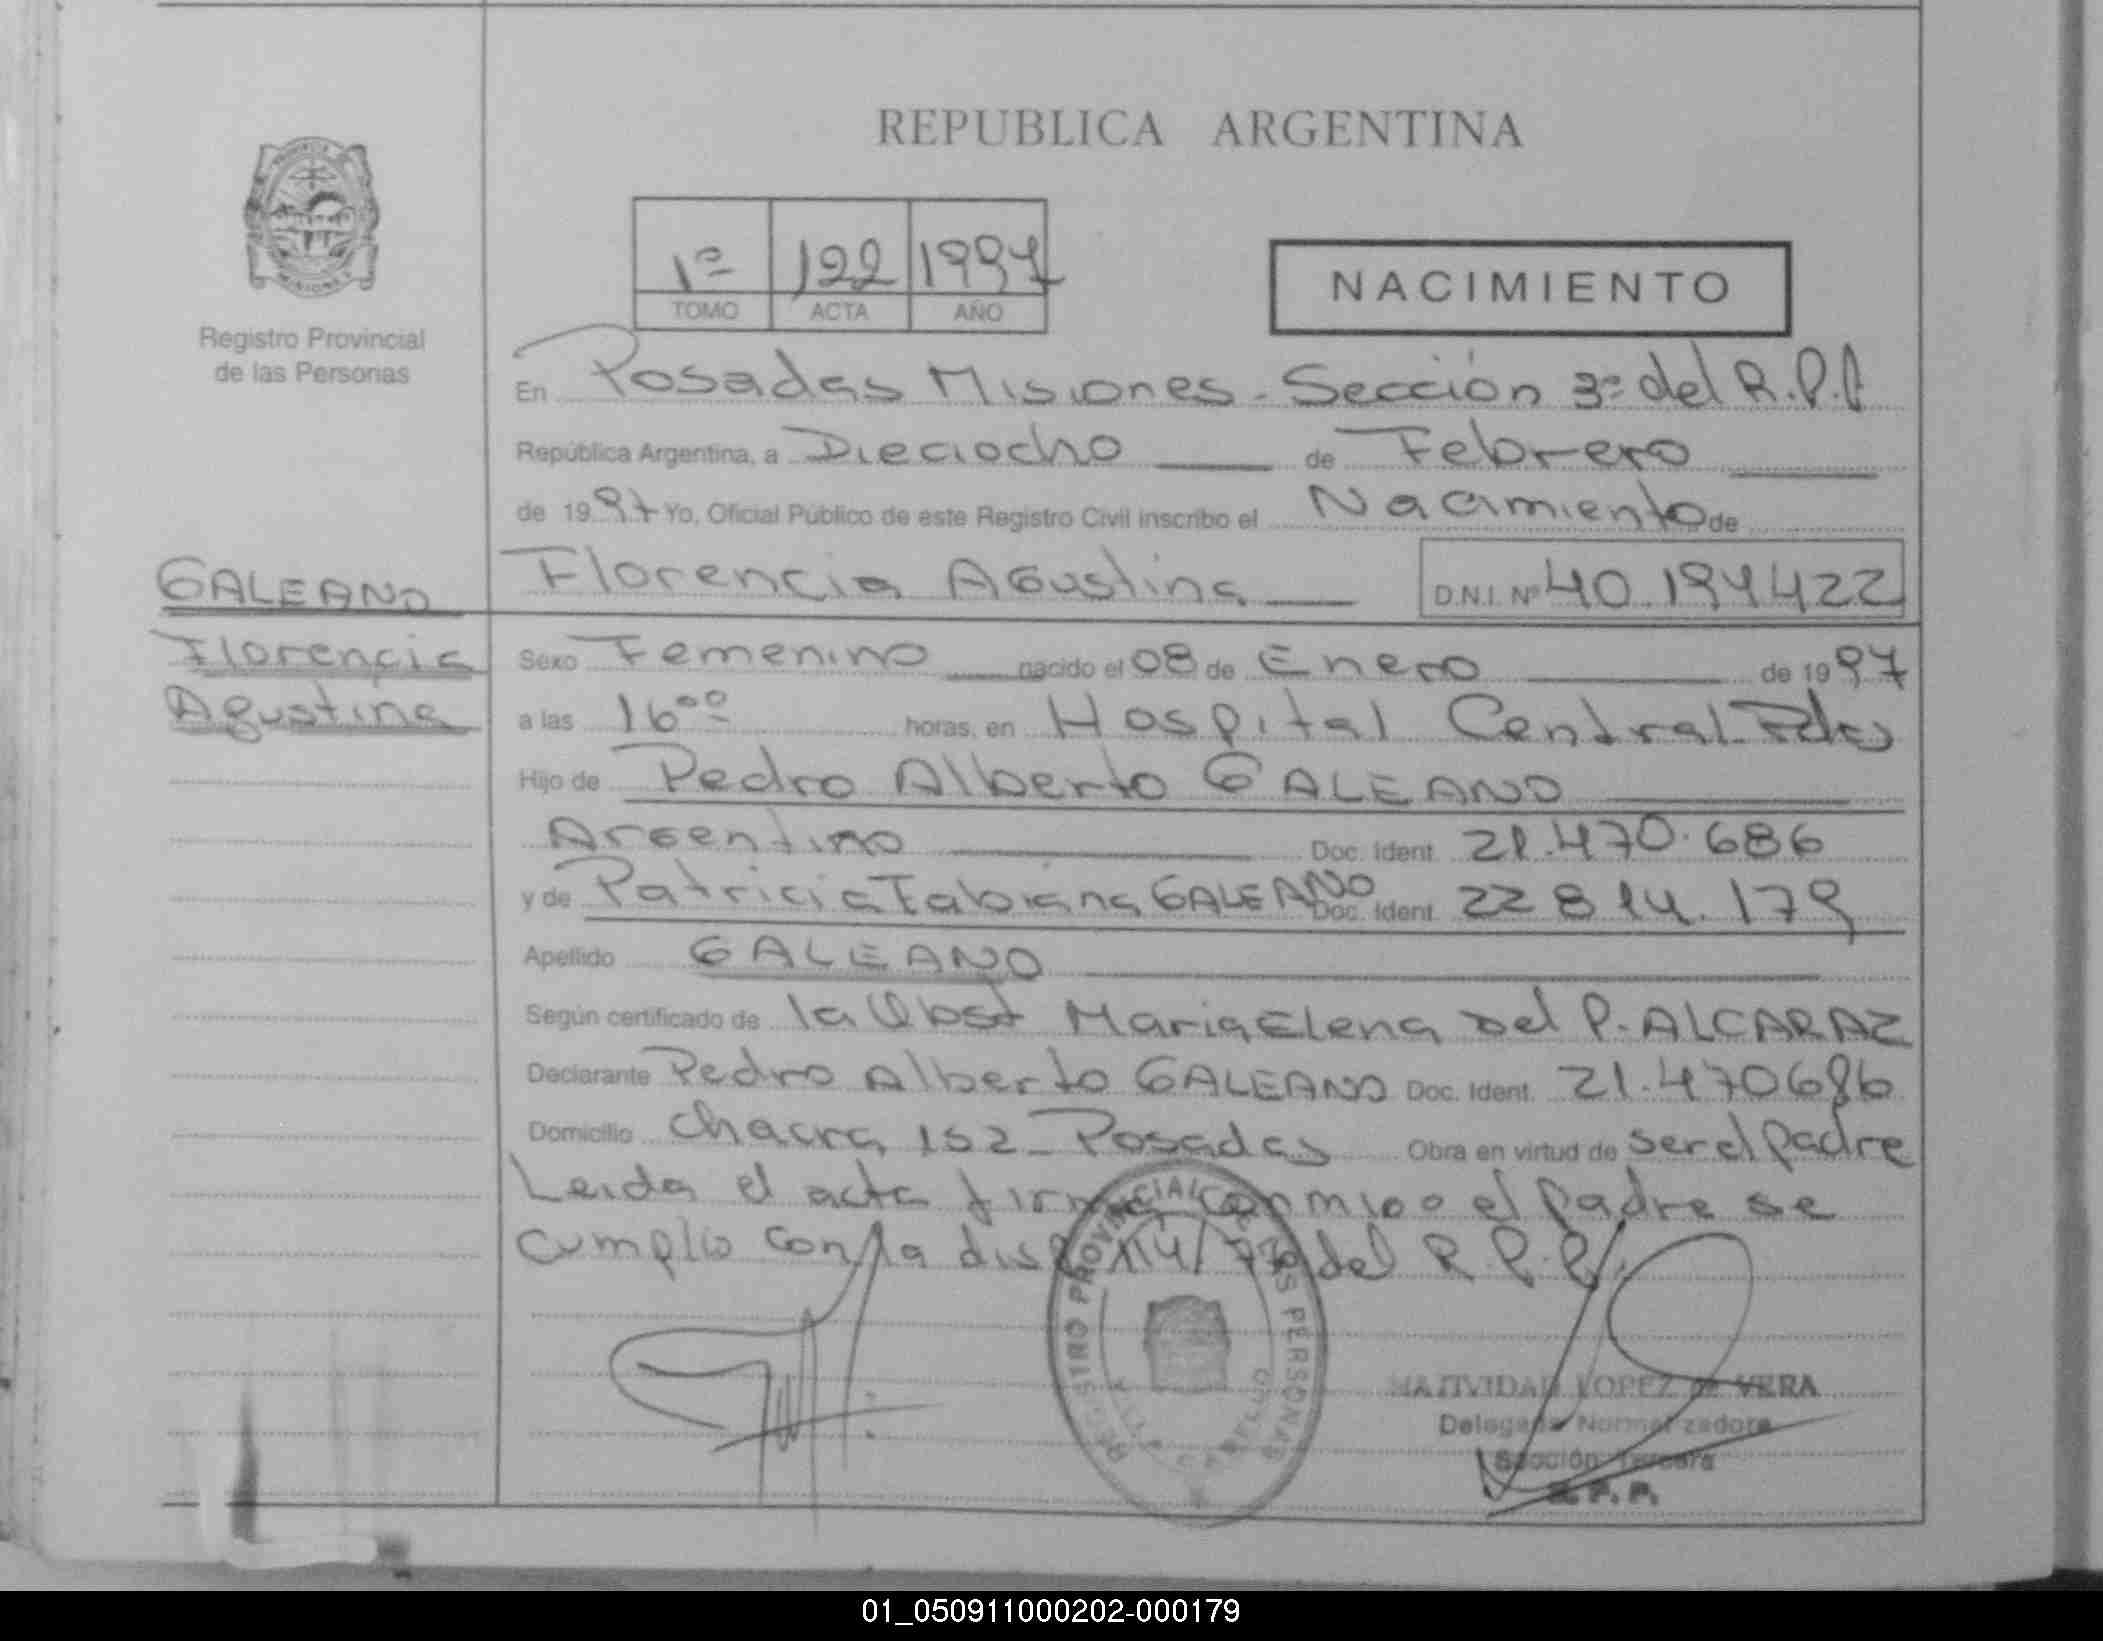 REPUBLICA ARGENTINA
PROVINCIA DE
MISIONES
Registro Provincial
de las Personas
1º 122 1997
TOMO ACTA AÑO
NACIMIENTO
En Posadas Misiones - Sección 3º del R.P.P
República Argentina, a Dieciocho de Febrero
de 1997 Yo, Oficial Público de este Registro Civil inscribo el Nacimiento de
GALEANO
Florencia
Agustina
Florencia Agustina D.N.I. Nº 40.194422
Sexo Femenino nacido el 08 de Enero de 1997
a las 16ºº horas, en Hospital Central Pdas
Hijo de Pedro Alberto GALEANO
Argentino Doc. Ident. 21.470.686
y de Patricia Fabiana GALEANO Doc. Ident. 22 814.179
Apellido GALEANO
Según certificado de la Obst Maria Elena Del P. ALCARAZ
Declarante Pedro Alberto GALEANO Doc. Ident. 21.470686
Domicilio Chacra 152 - Posadas Obra en virtud de ser el padre
Leida el acta firma conmigo el padre se
cumplio con la disp 114/ del R.P.P.
REGISTRO PROVINCIAL DE LAS PERSONAS
NATIVIDAD LOPEZ DE VERA
Delegada Normalizadora
Sección Tercera
R. P. P.
01_050911000202-000179